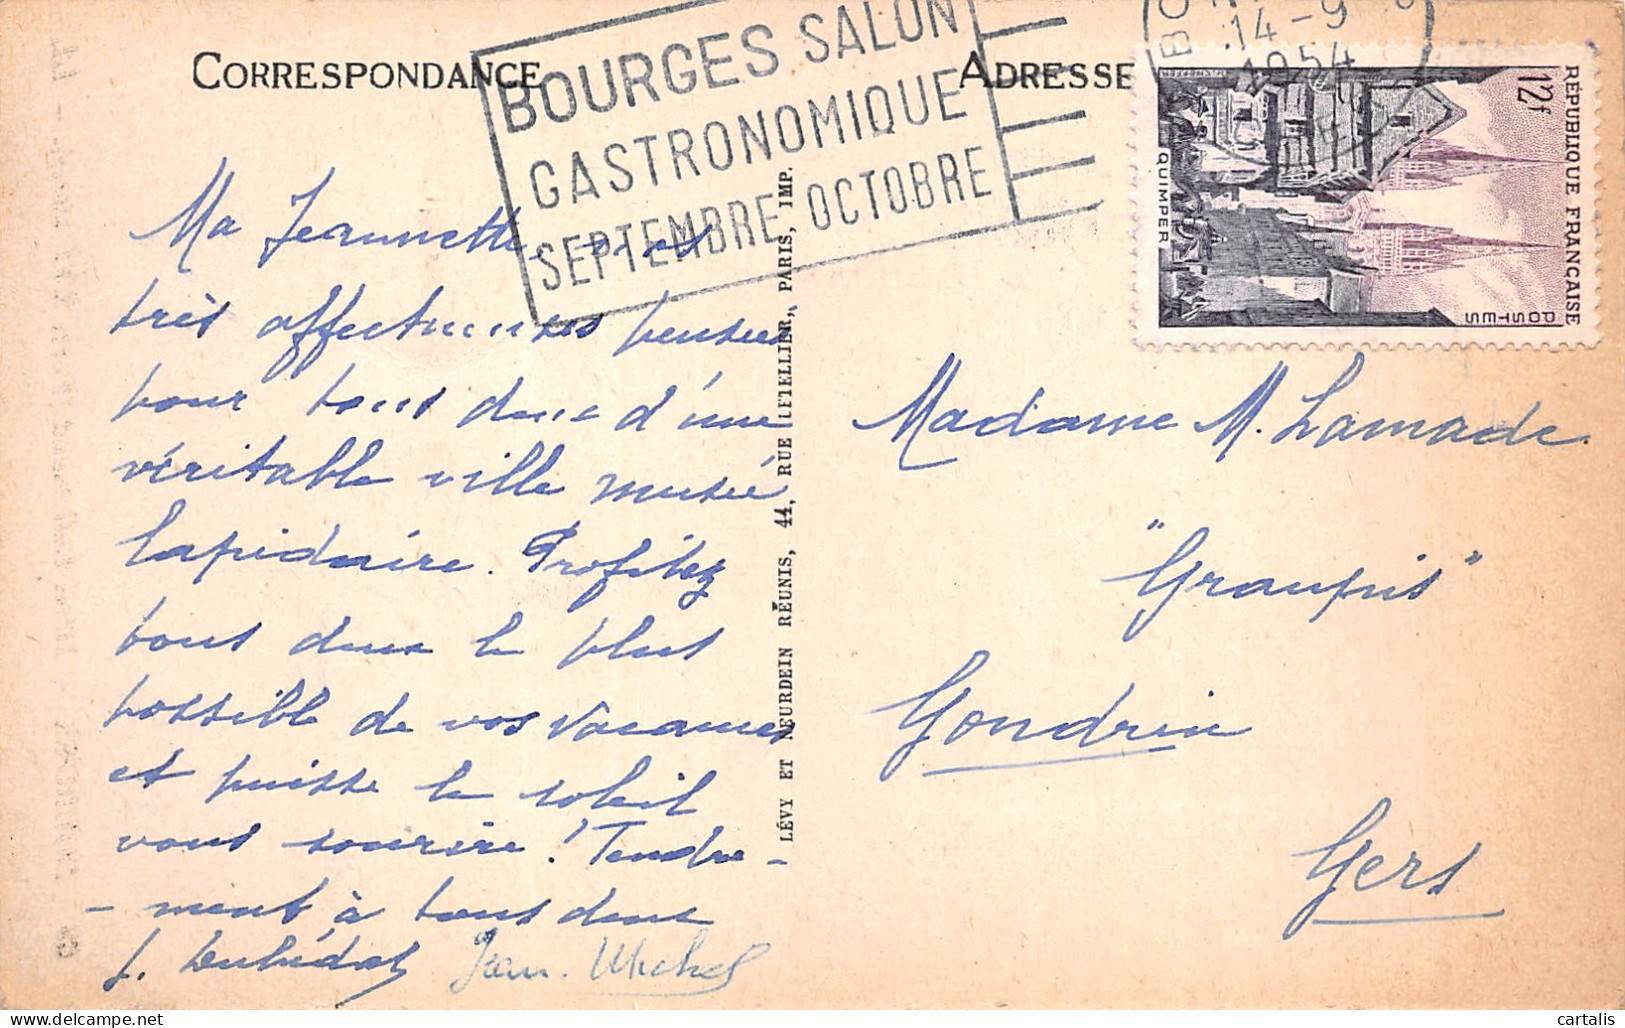 CORRESPONDANCE
BOURGES SALON
GASTRONOMIQUE
SEPTEMBRE OCTOBRE
ADRESSE
14-9
1954
RÉPUBLIQUE FRANÇAISE
12f
POSTES
QUIMPER
Ma Jeannette, nos
très affectueuses pensées
pour tous deux d'une
véritable ville musée
lapidaire. Profitez
tous deux le plus
possible de vos vacances
et puisse le soleil
vous sourire ! Tendre-
-ment à tous deux
J. Jean-Michel
LÉVY ET NEURDEIN RÉUNIS, 44, RUE LETELLIER, PARIS, IMP.
Madame M. Lamade
"Graupis"
Gondrin
Gers
cartalis